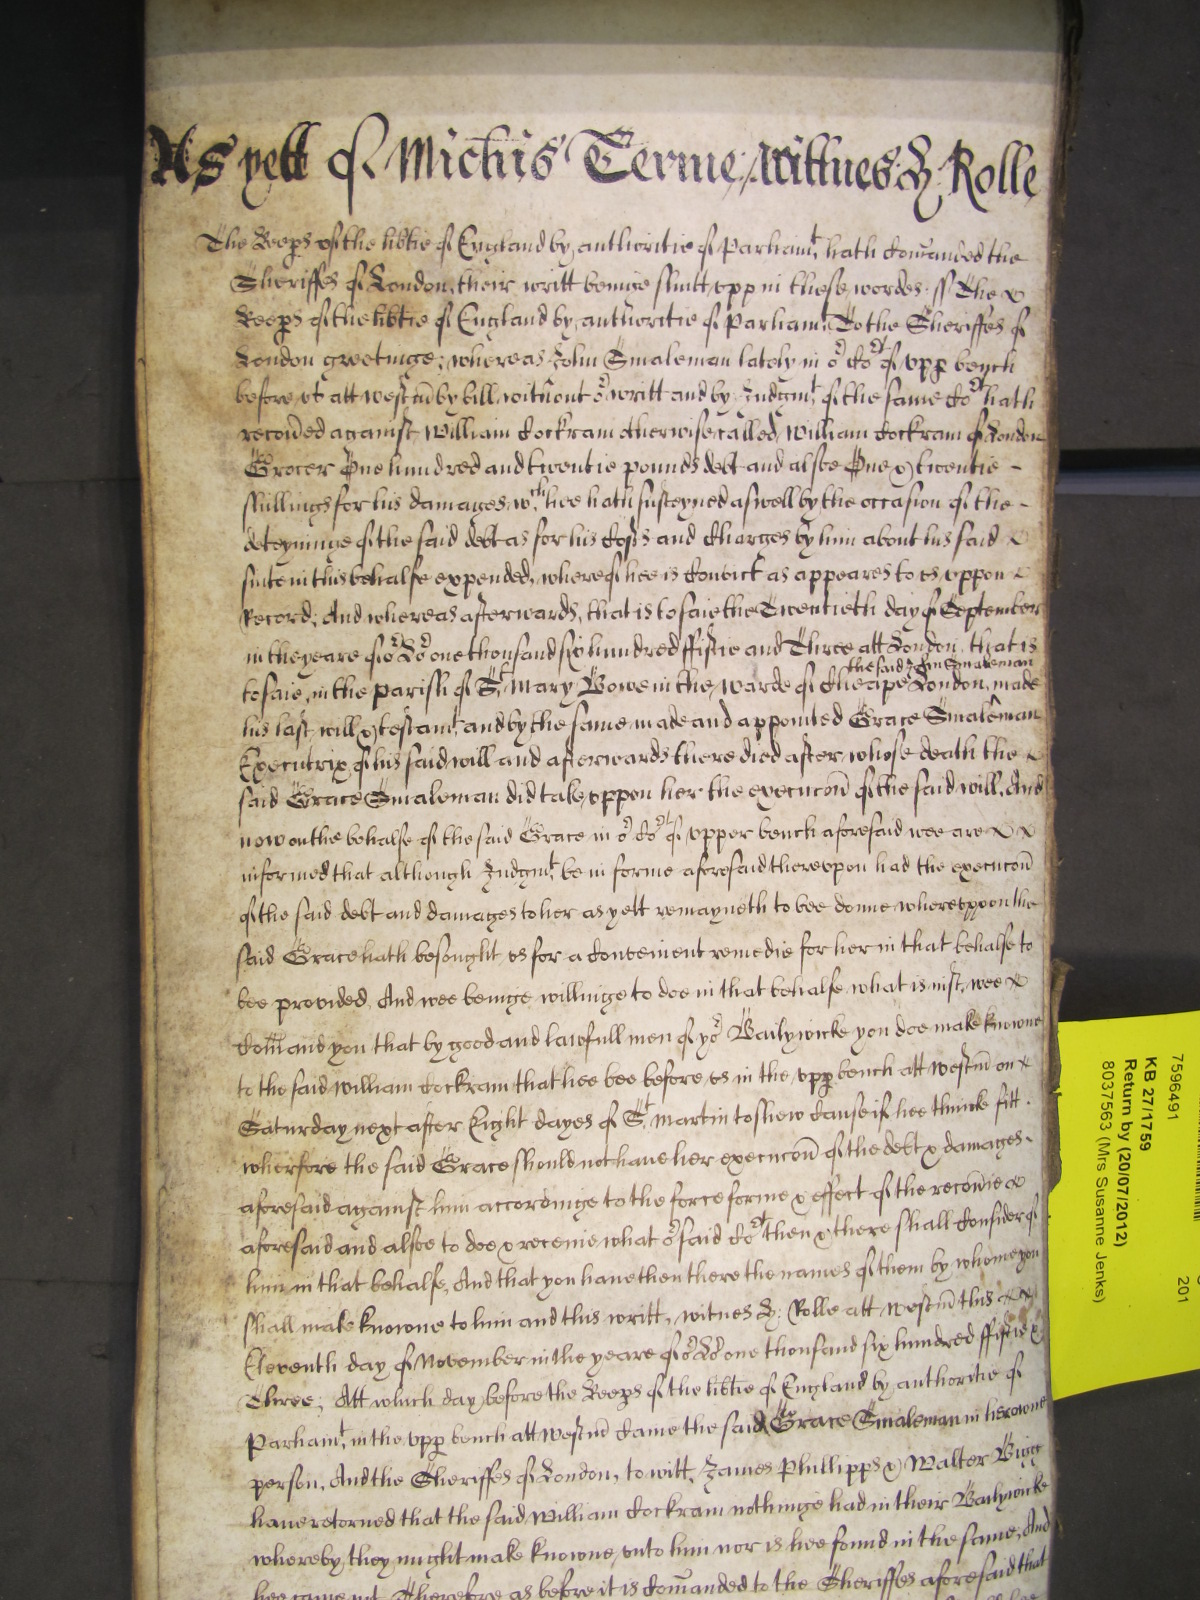 As yett of Michis Terme, Wittnes H: Rolle
The Keeps of the libtie of England by authoritie of Parliamt, hath com̄anded the
Sheriffes of London, their writt beinge shutt upp in these wordes ss The
Keeps of the libtie of England by authoritie of Parliamt, To the Sheriffes of
London greetinge; whereas John Smaleman lately in or Cort of upp bench
before us att Westm̄ by bill without or writt and by Judgmt, of the same Cort hath
recoūed against William Cockram otherwise called William Cockram of London
Grocer One hundred and twentie pounds debt and alsoe One & twentie
shillings for his damages, wch hee hath susteyned aswell by the occasion of the
deteyninge of the said debt as for his costs and Charges by him about his said
suite in this behalfe expended, whereof hee is convict as appeares to us, uppon
Record; And whereas afterwards, that is to saie the Twentieth day of September
in the yeare of or Lo: one thousand six hundred ffiftie and Three att London, that is
to saie, in the parish of St, Mary Bowe in the warde of Cheape London, the said John Smaleman made
his last will & testamt, and by the same made and appointed Grace Smaleman
Executrix of his said will and afterwards there died after whose death the
said Grace Smaleman did take uppon her the execucōn of the said will, And
now on the behalfe of the said Grace in or Cort of upper bench aforesaid wee are
informed that although Judgmt, be in forme aforesaid thereupon had the execucōn
of the said debt and damages to her as yett remayneth to bee donne whereuppon the
said Grace hath besought us for a convenient remedie for her in that behalfe to
bee provided, And wee beinge willinge to doe in that behalfe what is iust, wee
com̄and you that by good and lawfull men of yor Bailywicke you doe make knowne
to the said William Cockram that hee bee before us in the upp bench att Westm̄ on
Saturday next after Eight dayes of St, Martin to shew cause if hee thincke fitt
wherfore the said Grace should not have her execucōn of the debt & damages
aforesaid against him accordinge to the force forme & effect of the recoūie
aforesaid and alsoe to doe & receive what or said Cort then & there shall consider of
him in that behalfe, And that you have then there the names of them by whome you
shall make knowne to him and this writt, witnes H: Rolle att Westm̄ this
Eleventh day of November in the yeare of or Lo: one thousand six hundred ffiftie &
Three; Att which day before the Keeps of the libtie of England by authoritie of
Parliamt, in the upp bench att Westm̄ came the said Grace Smaleman in her owne
person, And the Sheriffes of London, to witt, James Phillipps & Walter Bigg
have retorned that the said William Cockram nothinge had in their Bailywicke
whereby they might make knowne unto him nor is hee found in the same, And
hee came not Therefore as before it is com̄anded to the Sheriffes aforesaid that
7596491
KB 27/1759
Return by (20/07/2012)
8037563 (Mrs Susanne Jenks)
201